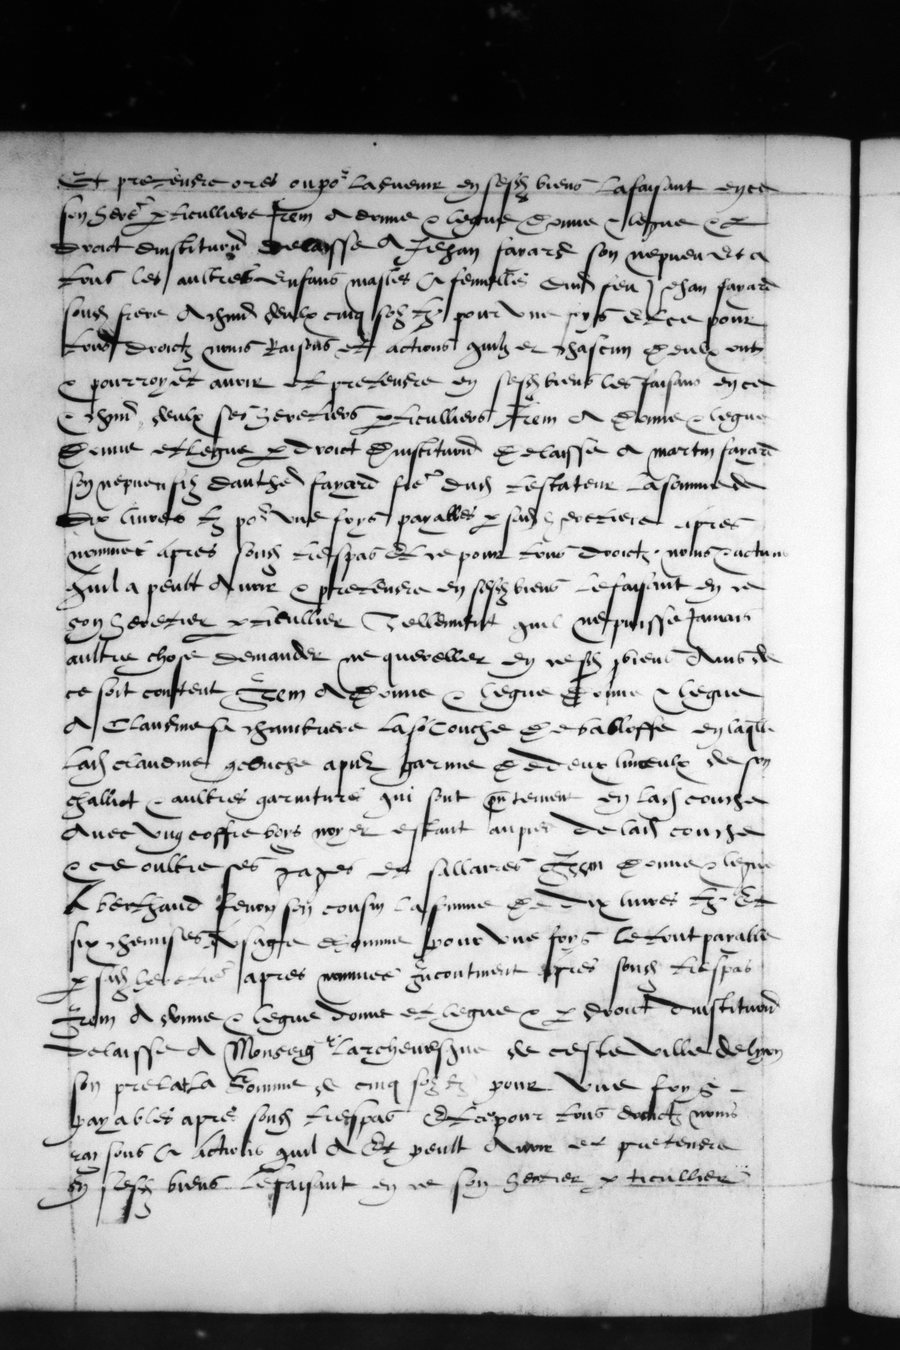 Et pretendre ores ou po.r ladvenir en sesd biens La faisant en ce
son heret.e p.ticulliere Item A donne & legue Donne & legue & et
droict dinstitution delaisse A Jehan fayard son nepveu et a
tous les aultres enfans masles & femelles dud feu Jehan fayard
sond frere A chund deulx cinq solz tz pour une foys et ce pour
tous droictz noms Raisons et actions quilz et chascun deulx ont
& pourroyent avoir et pretendre en sesd biens les faisans en ce
& chund deulx ses heretiers p.ticulliers Item A donne & legue
donne et legue & p droict dinstitution delaisse A martin fayard
son nepveu filz danthe fayard frere dud testateur La somme de
dix livres tz po.r une foys payables p sad heretiere apres
nommee apres sond trespas et ce pour tous droictz noms & actions
quil a peult Avoir & pretendre en sesd biens Le faisant en ce
son heretier p.ticullier Tellement quil ne puisse Jamais
aultre chose demander ne quereller en sesd biens Ains de
ce soit content Item A donne & legue donne & legue
A Claudine sa chambriere La couche en laqlle
Lad claudine couche garnie de deux linceulx de son
challict & aultres garnitures qui sont p.ntement en lad couche
Avec ung coffre boys noyer estant aupres de lad couche
& ce oultre ses gages et sallaires Item donne & legue
A berthaud son cousin La somme de dix livres tz Et
six chemises Usage dhomme pour une foys Le tout payable
p sad heretiere apres nommee Incontinent apres sond trespas
Item A donne & legue donne et legue & p droict dinstitution
delaisse A Monseig.r Larchevesque de ceste ville de lyon
son prelat La Somme de cinq solz tz pour une foys
payables apres sond trespas Et ce pour tous droictz noms
raisons & actions quil A Et peult Avoir et pretendre
en sesd biens Le faisant en ce son heretier p.ticullier